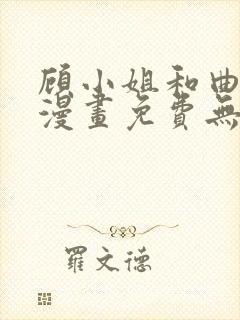 顾小姐和曲
漫畫免費無
羅文德